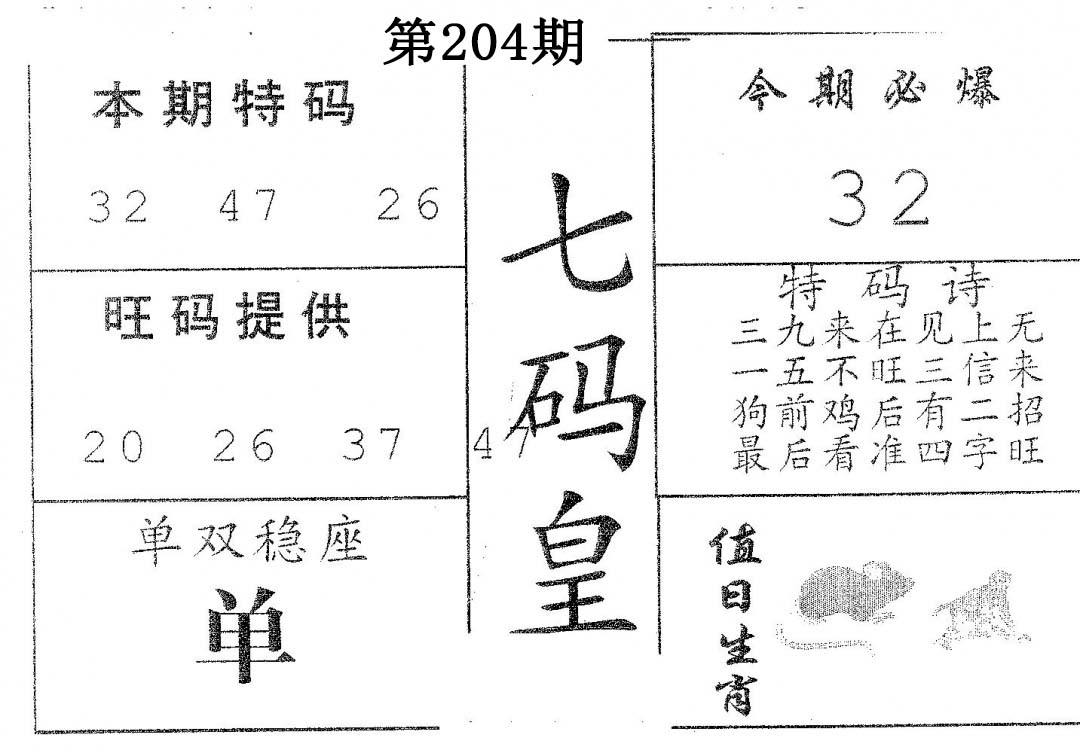 第204期
本期特码
32 47 26
旺码提供
20 26 37 47
单双稳座
单
七码皇
今期必爆
32
特码诗
三九来在见上无
一五不旺三信来
狗前鸡后有二招
最后看准四字旺
值日生肖